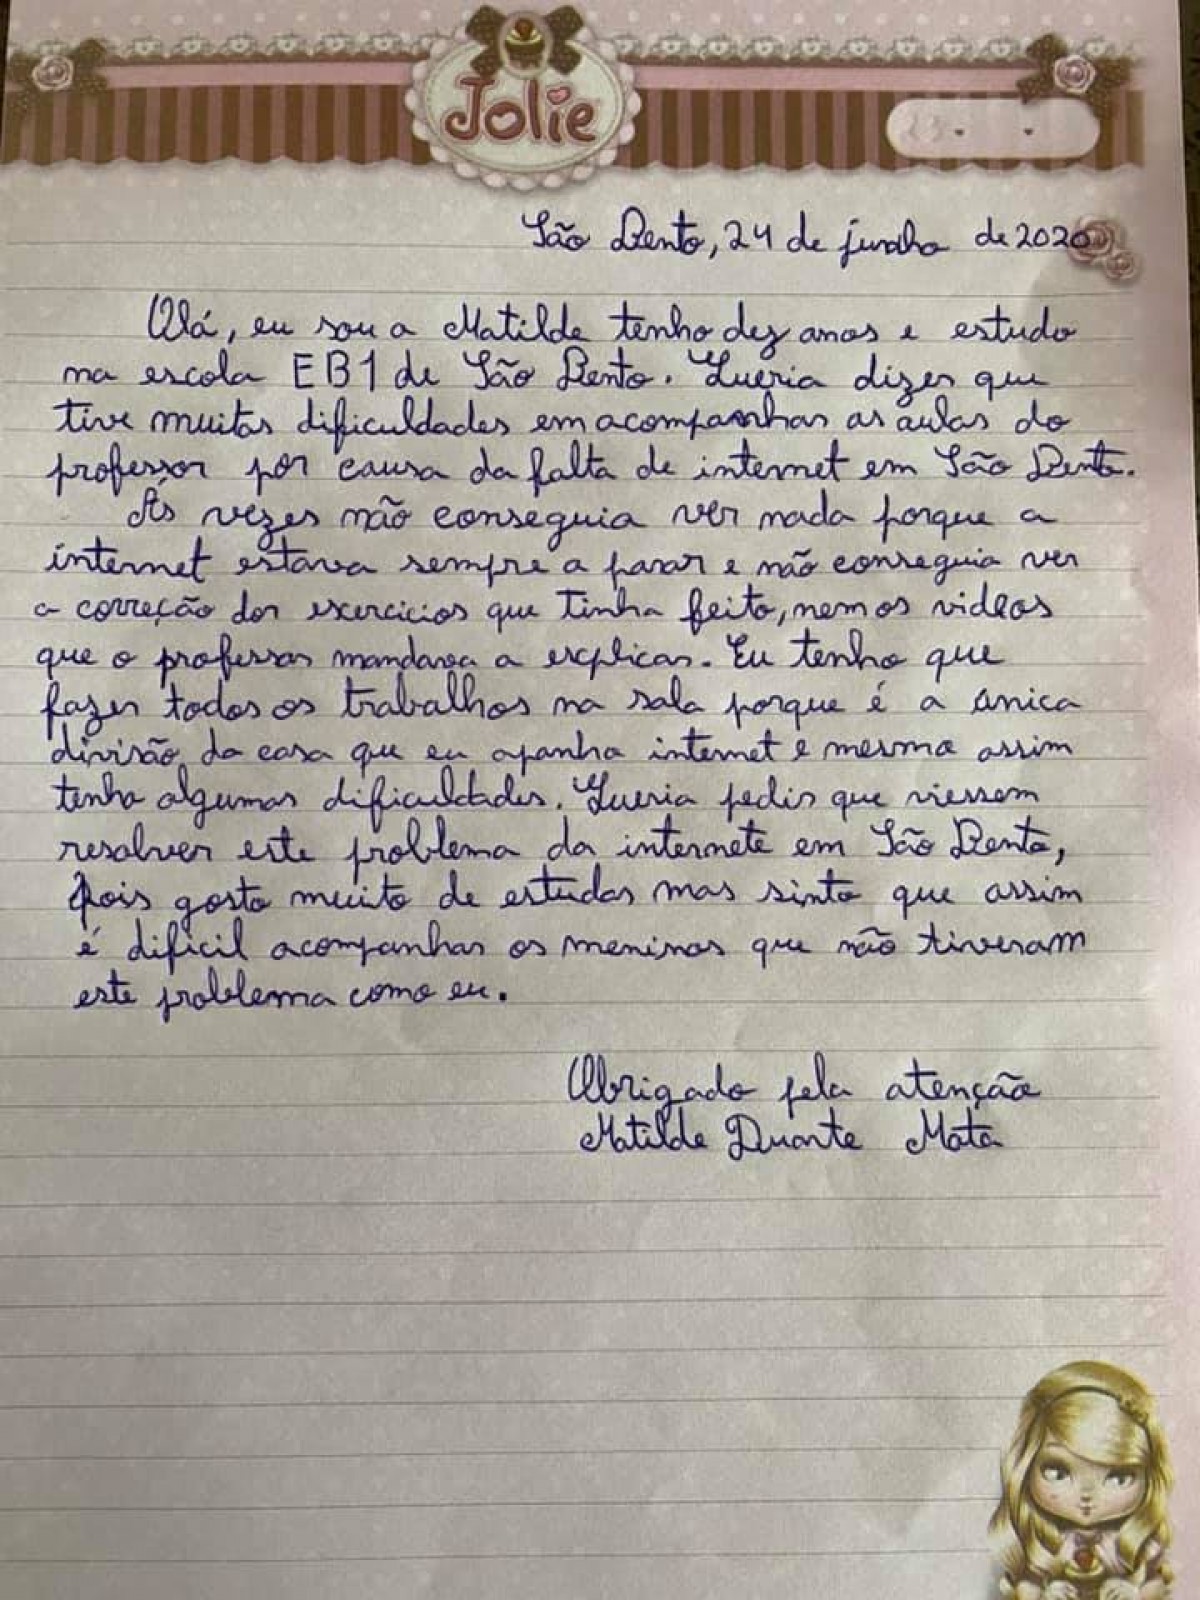 Jolie
São Bento, 24 de junho de 2020
Olá, eu sou a Matilde tenho dez anos e estudo
na escola EB1 de São Bento. Queria dizer que
tive muitas dificuldades em acompanhar as aulas do
professor por causa da falta de internet em São Bento.
Às vezes não conseguia ver nada porque a
internet estava sempre a parar e não conseguia ver
a correção dos exercicios que tinha feito, nem os videos
que o professor mandava a explicar. Eu tenho que
fazer todos os trabalhos na sala porque é a única
divisão da casa que eu apanho internet e mesmo assim
tenho algumas dificuldades. Queria pedir que viessem
resolver este problema da internete em São Bento,
pois gosto muito de estudar mas sinto que assim
é dificil acompanhar os meninos que não tiveram
este problema como eu.
Obrigado pela atenção
Matilde Duarte Mata